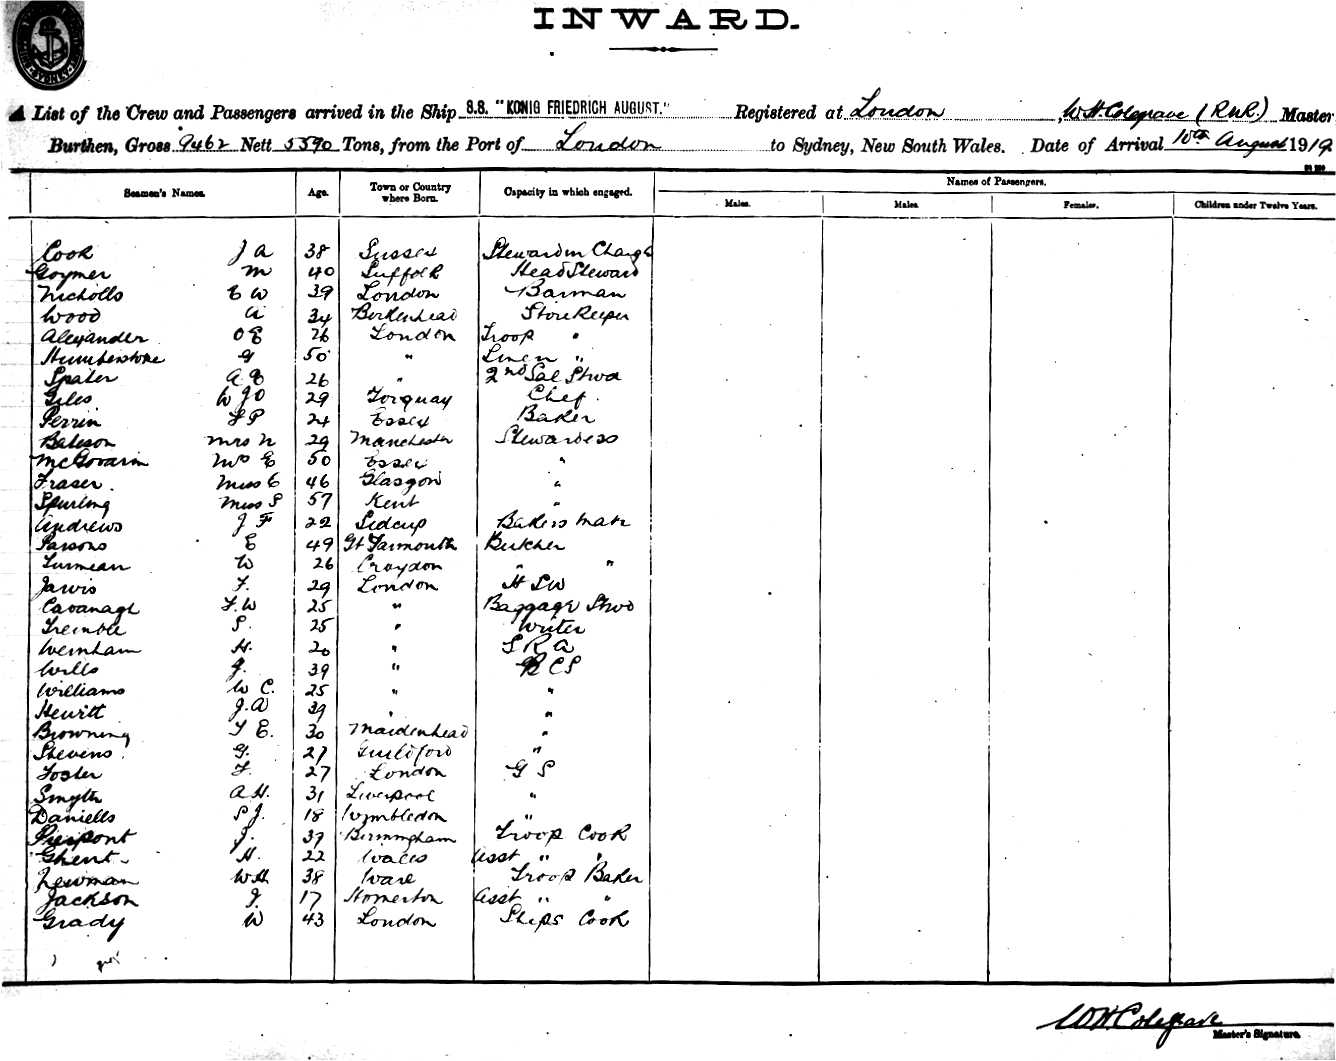 INWARD.
SYDNEY
A List of the Crew and Passengers arrived in the Ship S.S. "KONIG FRIEDRICH AUGUST." Registered at London, W H Colegrave (RNR.) Master
Burthen, Gross 9462 Nett 5590 Tons, from the Port of London to Sydney, New South Wales. Date of Arrival 10th August 1919
Seamen's Names. Age. Town or Country where Born. Capacity in which engaged. Names of Passengers.
Males. Males. Females. Children under Twelve Years.
Cook J A 38 Sussex Steward in Charge
Goymer M 40 Suffolk Head Steward
Nicholls E W 39 London Barman
Wood A 34 Birkenhead Storekeeper
Alexander O E 26 London Troop "
Humberstone G 50 " Linen "
Spater A E 26 " 2nd Sal Stwd
Giles W J O 29 Torquay Chef
Perrin F P 24 Essex Baker
Bateson Mrs N 29 Manchester Stewardess
McGovarin Mrs E 50 Essex "
Fraser. Miss C 46 Glasgow "
Spurling Miss S 57 Kent "
Andrews J F 22 Sidcup Bakers Mate
Parsons E 49 Gt Yarmouth Butcher
W 26 Croydon " "
Jarvis F. 29 London
Cavanagh F. W 25 " Baggage Stwd
Tremble S. 25 " Writer
Wernham H. 20 " S R A
Wills J. 39 " B C S
Williams W C. 25 " "
Hewitt J. A 39 " "
Browning T E. 30 Maidenhead "
Stevens G. 27 Guildford "
Foster F. 27 London G S
Smyth A H. 31 Liverpool "
Daniells S J. 18 Wimbledon "
Pierpont J. 39 Birmingham Troop Cook
Ghent H. 22 Wales Asst " "
Newman W H 38 Ware Troop Baker
Jackson J. 17 Homerton Asst " "
Grady W 43 London Ships Cook
W H Colegrave
Master's Signature.